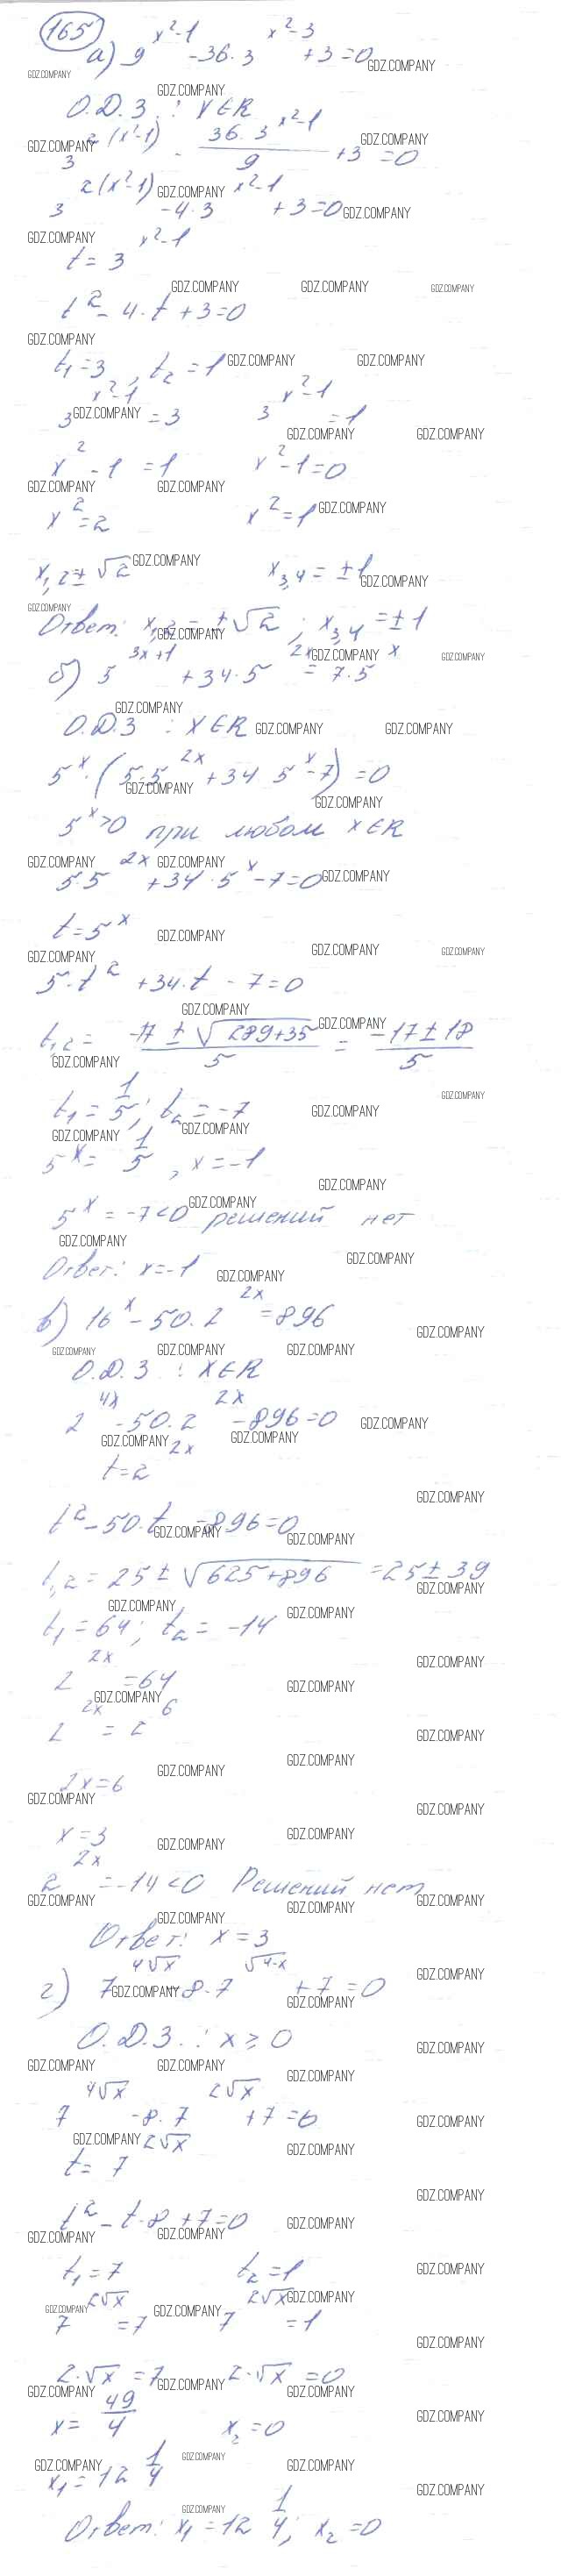 165
а) 9^(x²-1) - 36·3^(x²-3) + 3 = 0
О.Д.З : X∈R
3^(2(x²-1)) - (36·3^(x²-1))/9 + 3 = 0
3^(2(x²-1)) - 4·3^(x²-1) + 3 = 0
t = 3^(x²-1)
t² - 4·t + 3 = 0
t₁ = 3, t₂ = 1
3^(x²-1) = 3    3^(x²-1) = 1
x² - 1 = 1    x² - 1 = 0
x² = 2    x² = 1
x₁,₂ ± √2    x₃,₄ = ±1
Ответ: x₁,₂ = ±√2 ; x₃,₄ = ±1
б) 5^(3x+1) + 34·5^(2x) = 7·5^x
О.Д.З : X∈R
5^x · (5·5^(2x) + 34 5^x - 7) = 0
5^x > 0 при любом X∈R
5·5^(2x) + 34·5^x - 7 = 0
t = 5^x
5·t² + 34·t - 7 = 0
t₁,₂ = (-17 ± √(289+35))/5 = (-17 ± 18)/5
t₁ = 1/5 ; t₂ = -7
5^x = 1/5 , x = -1
5^x = -7 < 0 решений нет
Ответ: x = -1
в) 16^x - 50·2^(2x) = 896
О.Д.З : X∈R
2^(4x) - 50·2^(2x) - 896 = 0
t = 2^(2x)
t² - 50·t - 896 = 0
t₁,₂ = 25 ± √(625+896) = 25 ± 39
t₁ = 64 ; t₂ = -14
2^(2x) = 64
2^(2x) = 2^6
2x = 6
x = 3
2^(2x) = -14 < 0 Решений нет
Ответ: x = 3
г) 7^(4√x) - 8·7^(√(4·x)) + 7 = 0
О.Д.З. : x ≥ 0
7^(4√x) - 8·7^(2√x) + 7 = 0
t = 7^(2√x)
t² - t·8 + 7 = 0
t₁ = 7    t₂ = 1
7^(2√x) = 7    7^(2√x) = 1
2·√x = 7    2·√x = 0
x = 49/4    x₂ = 0
x₁ = 12 1/4
Ответ: x₁ = 12 1/4 ; x₂ = 0
GDZ.COMPANY